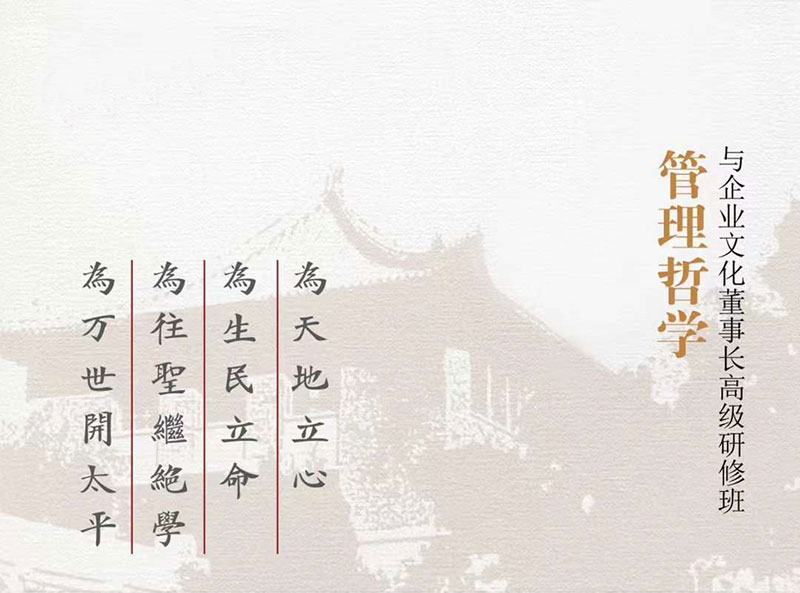 管理哲学
与企业文化董事长高级研修班
為天地立心
為生民立命
為往聖繼絕學
為万世開太平